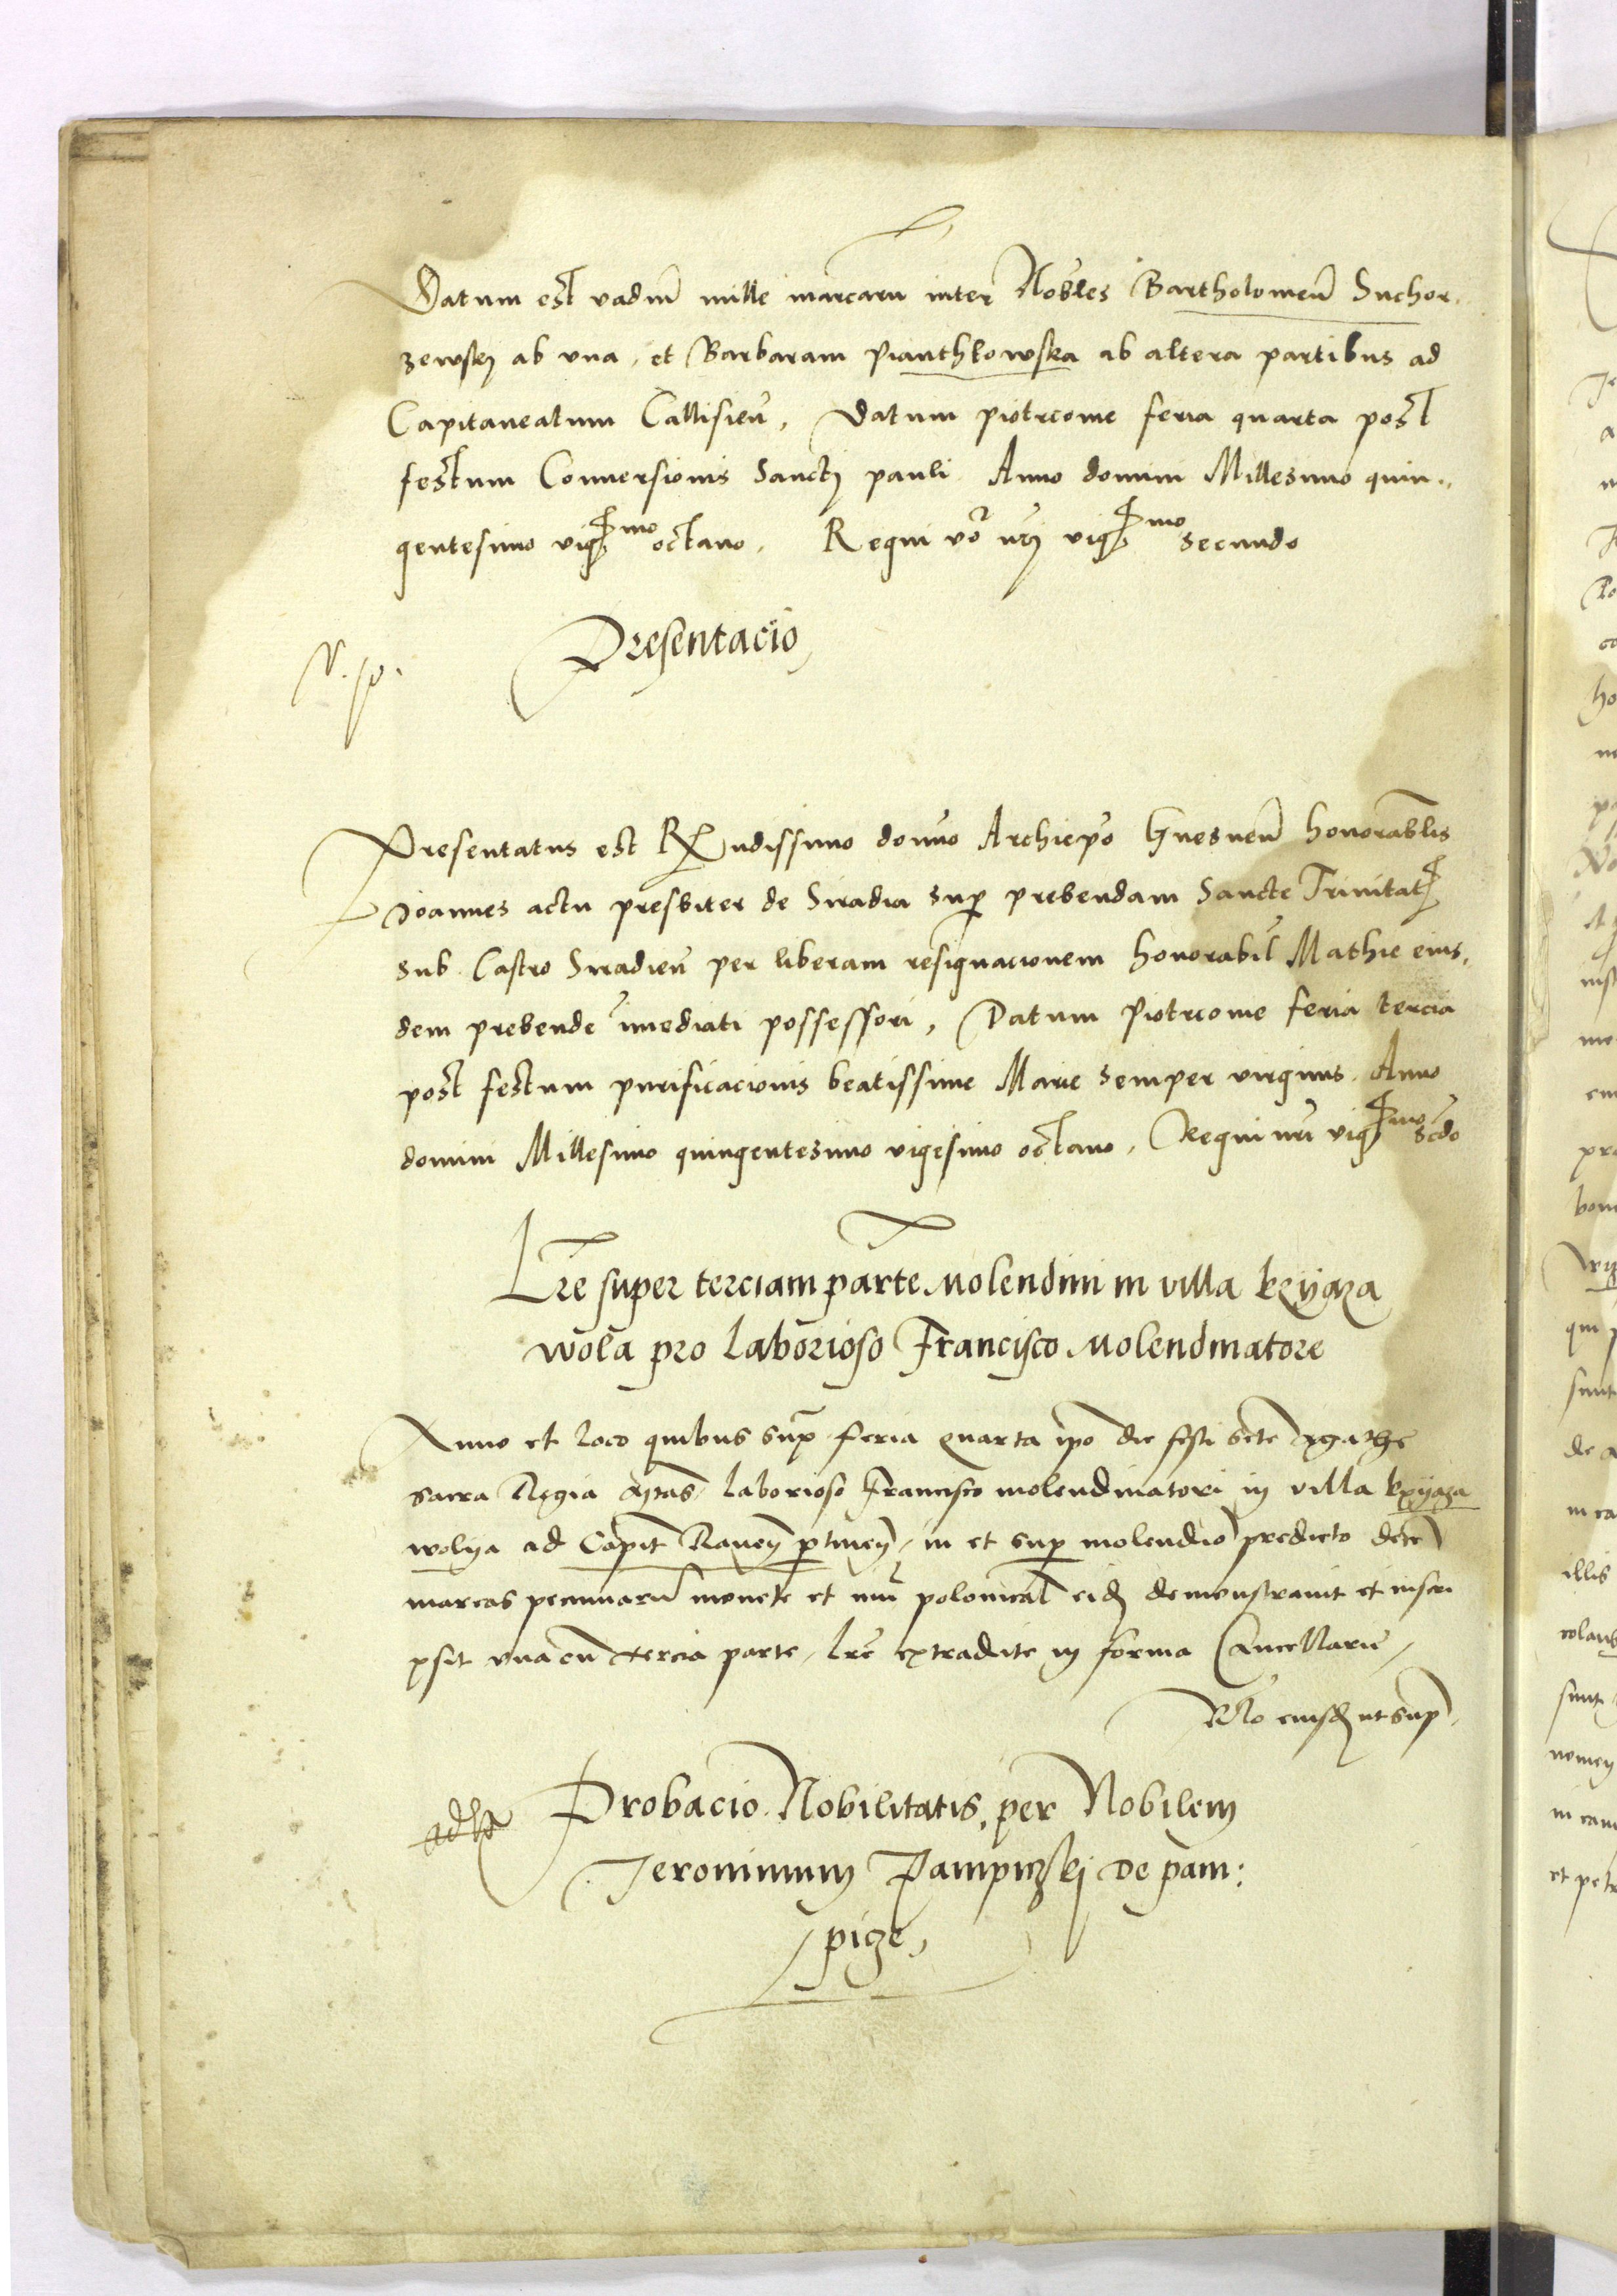 Datum est vadiu mille marcaru inter Nobles Bartholomeu Suchor
zewskj ab vna, et Barbaram Pianthkowska ab altera partibus ad
Capitaneatum Callisien, Datum piotrcouie feria quarta post
festum Conuersionis Sanctj pauli Anno domini Millesimo quin
gentesimo vig mo octauo. Regni vo nrj vig mo secundo
N. p.
Presentacio
Presentatus est R ndissimo domno Archiepo Gnesnen honorablis
Joannes actu presbiter de Siradia sup prebendam Sancte Trinitat
sub Castro Siradien per liberam resignacionem honorabil Mathie eius
dem prebende imediati possessori, Datum Piotrcouie feria tercia
post festum purificacionis beatissime Marie semper virginis Anno
domini Millesimo quingentesimo vigesimo octauo. Regni nri vig mo scdo
Lre super terciam parte Molendini in villa kzyaza
wola pro Laborioso Francisco Molendinatore
Anno et loco quibus sup feria quarta ipo die festi scte Agathe
sacra Regia Mtas laborioso Francisco molendinatori in villa kxyaza
wolya ad Capit Rauen ptinen, in et sup molendio predicto dece
marcas pecuniaru monete et nui polonical eid demonstrauit et inscri
psit vna cu tercia parte, lre extradite in forma Cancellarie,
Rlo eiusd ut sup
Probacio Nobilitatis, per Nobilem
Jeronimum Pampiczskj de pam:
picze,